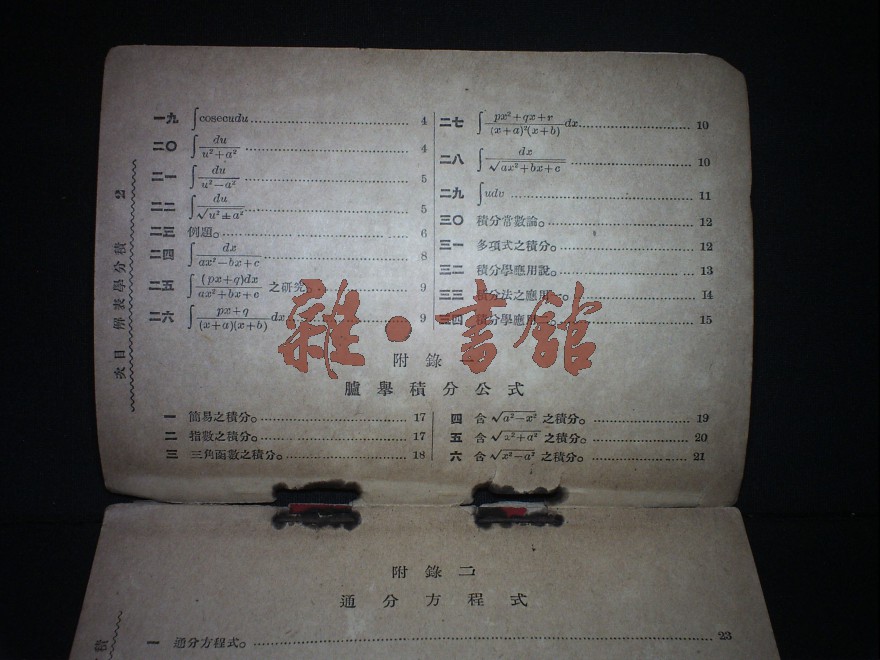 積分學表解 目次 2
一九 ∫cosecudu 4
二〇 ∫du/(u²+a²) 4
二一 ∫du/(u²-a²) 5
二二 ∫du/√(u²±a²) 5
二三 例題。 6
二四 ∫dx/(ax²-bx+c) 8
二五 ∫(px+q)dx/(ax²+bx+c) 之研究。 9
二六 ∫(px+q)/((x+a)(x+b))dx 9
二七 ∫(px²+qx+r)/((x+a)²(x+b))dx 10
二八 ∫dx/√(ax²+bx+c) 10
二九 ∫udv 11
三〇 積分常數論。 12
三一 多項式之積分。 12
三二 積分學應用說。 13
三三 積分法之應用 14
三四 積分學應用 15
雜·書館
附錄一
臚舉積分公式
一 簡易之積分。 17
二 指數之積分。 17
三 三角函數之積分。 18
四 含√(a²-x²)之積分。 19
五 含√(x²+a²)之積分。 20
六 含√(x²-a²)之積分。 21
附錄二
通分方程式
一 通分方程式。 23
積